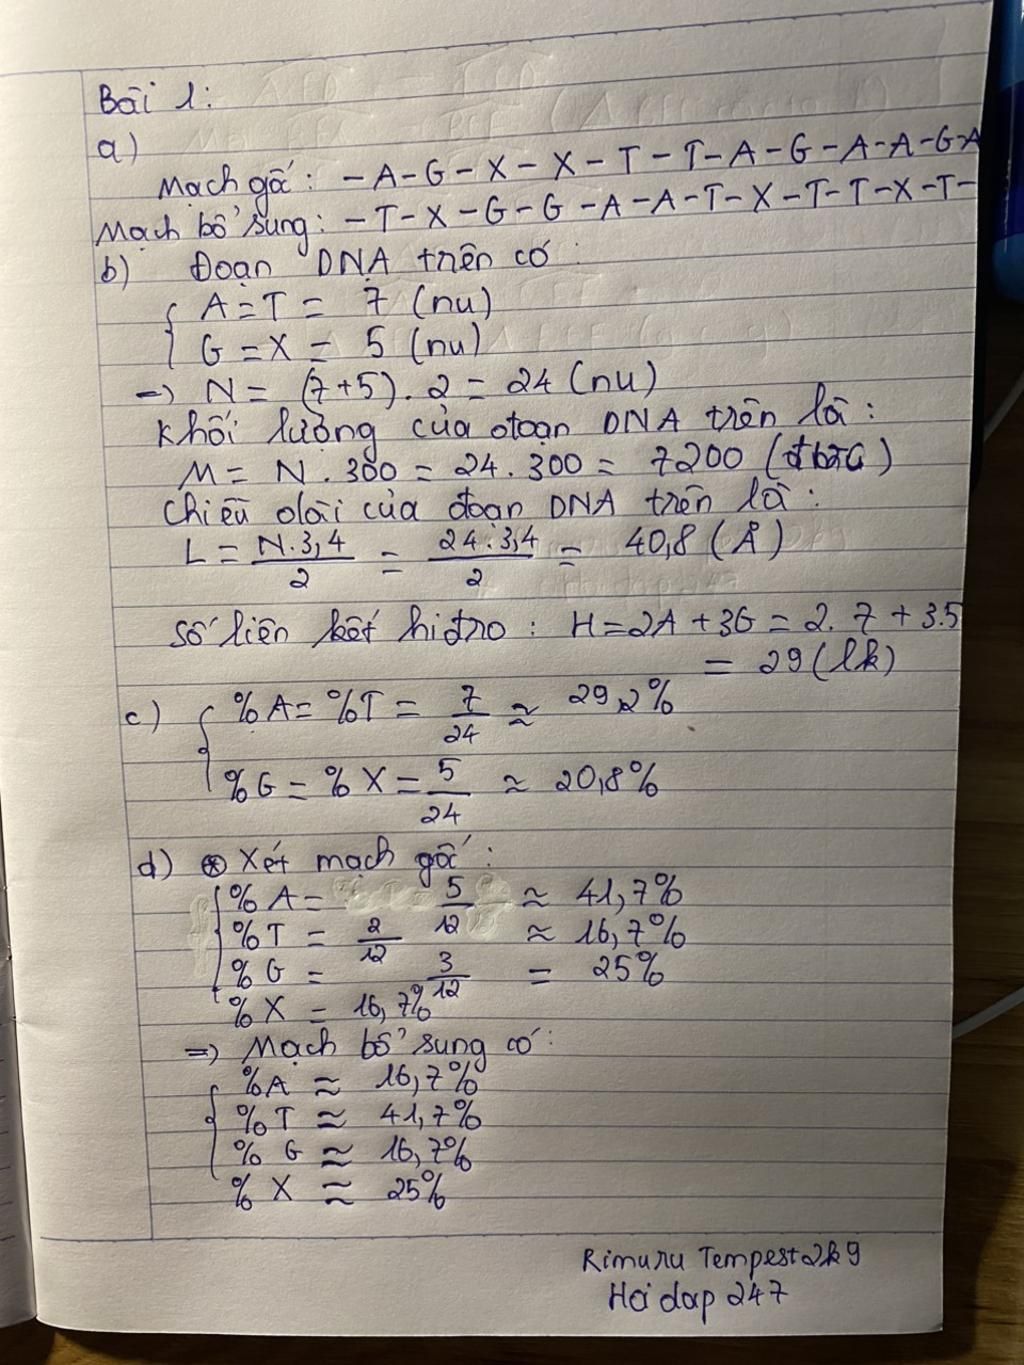 Bài 1:
a)
Mạch gốc: -A-G-X-X-T-T-A-G-A-A-G-A
Mạch bổ sung: -T-X-G-G-A-A-T-X-T-T-X-T-
b) Đoạn DNA trên có:
A=T= 7 (nu)
G=X= 5 (nu)
=> N= (7+5).2=24 (nu)
Khối lượng của đoạn DNA trên là:
M= N.300=24.300= 7200 (đvC)
Chiều dài của đoạn DNA trên là:
L= N.3,4/2 = 24.3,4/2 = 40,8 (Å)
Số liên kết hiđro: H=2A+3G=2.7+3.5
= 29 (lk)
c) %A=%T= 7/24 ≈ 29,2%
%G=%X= 5/24 ≈ 20,8%
d) ⊛ Xét mạch gốc:
%A= 5/12 ≈ 41,7%
%T= 2/12 ≈ 16,7%
%G= 3/12 = 25%
%X= 16,7%
=> Mạch bổ sung có:
%A ≈ 16,7%
%T ≈ 41,7%
%G ≈ 16,7%
%X ≈ 25%
Rimuru Tempest2k9
Hoi dap 247